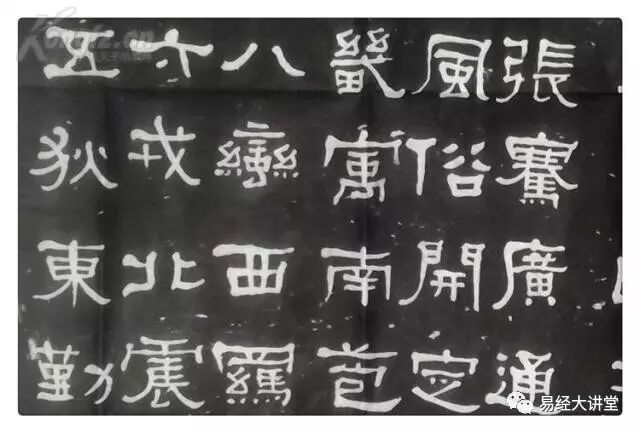 張騫廣通
風俗開定
畿寓南苞
八蠻西羈
六戎北震
五狄東勤
易经大讲堂